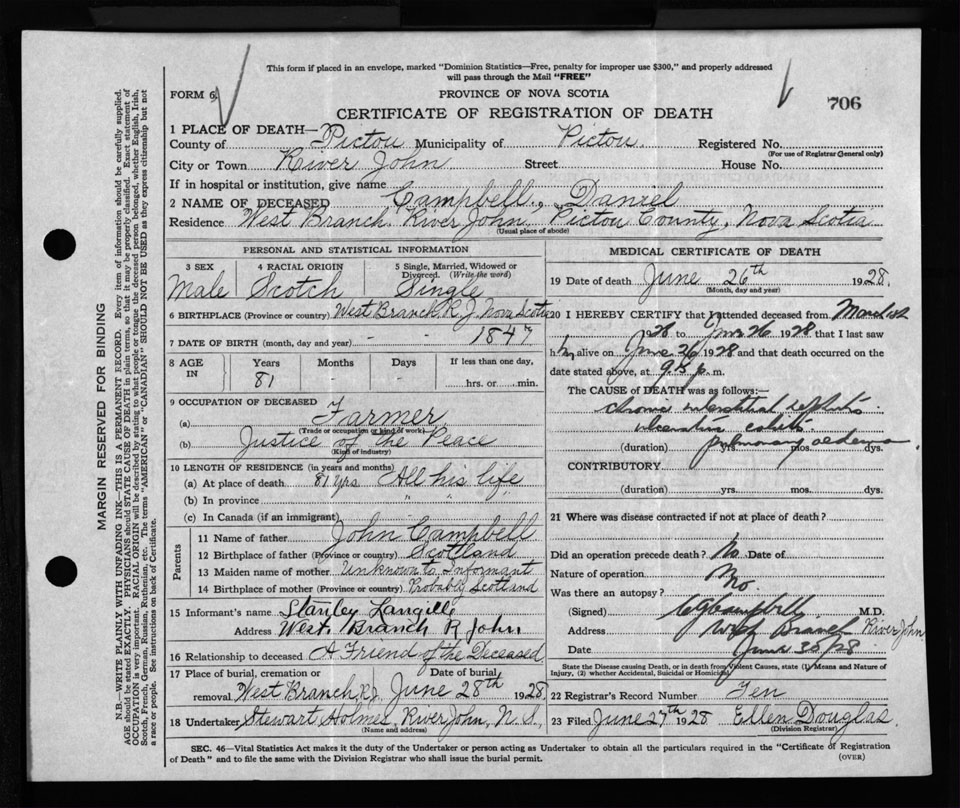 This form if placed in an envelope, marked "Dominion Statistics—Free, penalty for improper use $300," and properly addressed
will pass through the Mail "FREE"
FORM 6
PROVINCE OF NOVA SCOTIA
706
CERTIFICATE OF REGISTRATION OF DEATH
1 PLACE OF DEATH—
County of Pictou Municipality of Pictou. Registered No.
(For use of Registrar General only)
City or Town River John Street House No.
If in hospital or institution, give name
2 NAME OF DECEASED Campbell, Daniel
Residence West Branch River John Pictou County, Nova Scotia
(Usual place of abode)
PERSONAL AND STATISTICAL INFORMATION
3 SEX 4 RACIAL ORIGIN 5 Single, Married, Widowed or
Divorced. (Write the word)
Male Scotch Single
6 BIRTHPLACE (Province or country) West Branch R. J. Nova Scotia
7 DATE OF BIRTH (month, day and year) - - 1847
8 AGE IN Years Months Days If less than one day,
81 - - hrs. or min.
9 OCCUPATION OF DECEASED
(a) Farmer
(Trade or occupation or kind of work)
(b) Justice of the Peace
(Kind of industry)
10 LENGTH OF RESIDENCE (in years and months)
(a) At place of death 81 yrs. All his life
(b) In province " " "
(c) In Canada (if an immigrant)
Parents
11 Name of father John Campbell
12 Birthplace of father (Province or country) Scotland
13 Maiden name of mother Unknown to Informant
14 Birthplace of mother (Province or country) Probably Scotland
15 Informant's name Stanley Langille
Address West Branch R John
16 Relationship to deceased A Friend of the Deceased
17 Place of burial, cremation or Date of burial,
removal West Branch R.J. June 28th 1928
18 Undertaker Stewart Holmes, River John, N. S.
(Name and address)
MEDICAL CERTIFICATE OF DEATH
19 Date of death June 26th 1928.
(Month, day and year)
20 I HEREBY CERTIFY that I attended deceased from March 1st
1928 to June 26 1928 that I last saw
him alive on June 26 1928 and that death occurred on the
date stated above, at p. m.
The CAUSE of DEATH was as follows:—
chronic interstitial nephritis
ulcerative colitis
(duration) pulmonary oedema yrs. mos. dys.
CONTRIBUTORY
(duration) yrs. mos. dys.
21 Where was disease contracted if not at place of death?
Did an operation precede death? No Date of
Nature of operation
Was there an autopsy? No.
(Signed) Campbell M.D.
Address West Branch River John
Date June 30/28
State the Disease causing Death, or in death from Violent Causes, state (1) Means and Nature of
Injury, (2) whether Accidental, Suicidal or Homicidal.
22 Registrar's Record Number Ten
23 Filed June 27th 1928 Ellen Douglas.
(Division Registrar)
SEC. 46—Vital Statistics Act makes it the duty of the Undertaker or person acting as Undertaker to obtain all the particulars required in the "Certificate of Registration
of Death" and to file the same with the Division Registrar who shall issue the burial permit.
(OVER)
MARGIN RESERVED FOR BINDING
N.B.—WRITE PLAINLY WITH UNFADING INK—THIS IS A PERMANENT RECORD. Every item of information should be carefully supplied.
AGE should be stated EXACTLY. PHYSICIANS should STATE CAUSE OF DEATH in plain terms, so that it may be properly classified. Exact statement of
OCCUPATION is very important. RACIAL ORIGIN will be described by stating to what people or tongue the deceased person belonged, whether English, Irish,
Scotch, French, German, Russian, Ruthenian, etc. The terms "AMERICAN" or "CANADIAN" SHOULD NOT BE USED as they express citizenship but not
a race or people. See instructions on back of Certificate.